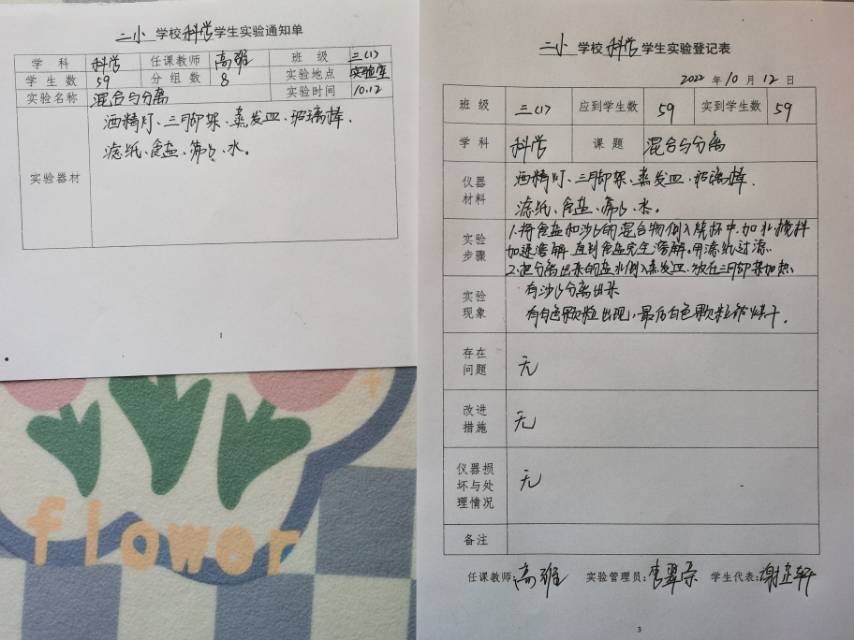 二小 学校 科学 学生实验通知单
学科 科学 任课教师 高雅 班级 三(1)
学生数 59 分组数 8 实验地点 实验室
实验名称 混合与分离 实验时间 10.12
实验器材
酒精灯、三角架、蒸发皿、玻璃棒、
滤纸、食盐、沙、水。
1
flower
二小 学校 科学 学生实验登记表
2022 年 10 月 12 日
班级 三(1) 应到学生数 59 实到学生数 59
学科 科学 课题 混合与分离
仪器材料
酒精灯、三角架、蒸发皿、玻璃棒、
滤纸、食盐、沙、水。
实验步骤
1.将食盐和沙的混合物倒入烧杯中,加水搅拌
加速溶解,直到食盐完全溶解。用滤纸过滤.
2.把分离出来的盐水倒入蒸发皿,放在三角架加热
实验现象
有沙分离出来
有白色颗粒出现,最后白色颗粒被烘干.
存在问题 无
改进措施 无
仪器损坏与处理情况 无
备注
任课教师:高雅 实验管理员: 学生代表:
3